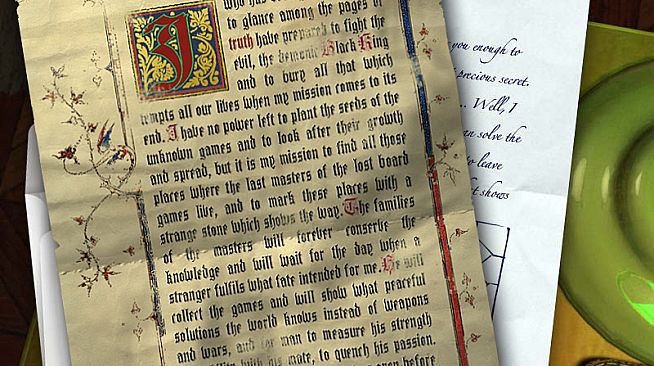 I
to glance among the pages of
truth have prepared to fight the
evil, the demonic Black King
and to bury all that which
tempts all our lives when my mission comes to its
end. I have no power left to plant the seeds of the
unknown games and to look after their growth
and spread, but it is my mission to find all those
places where the last masters of the lost board
games live, and to mark these places with a
strange stone which shows the way. The families
of the masters will forever conserve the
knowledge and will wait for the day when a
stranger fulfils what fate intended for me. He will
collect the games and will show what peaceful
solutions the world knows instead of weapons
and wars, and for man to measure his strength
with his mate, to quench his passion.
before
you enough to
precious secret.
... Well, I
can solve the
to leave
shows